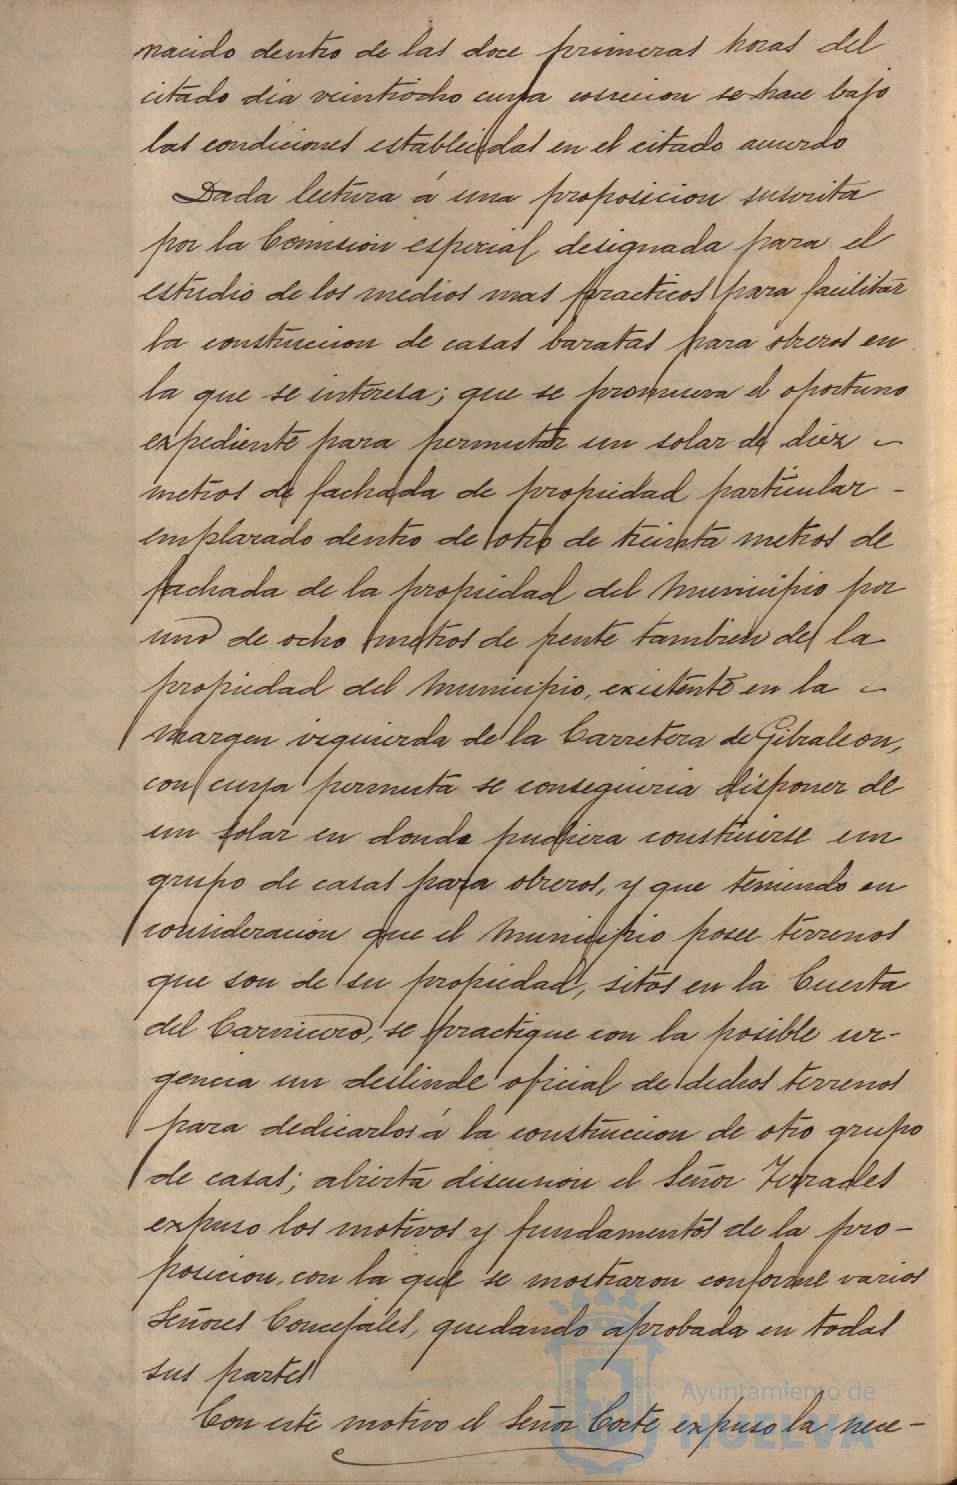 nacido dentro de las doce primeras horas del
citado dia veintiocho cuya cosecion se hace bajo
las condiciones establecidas en el citado acuerdo
Dada lectura á una proposicion suscrita
por la Comision especial designada para el
estudio de los medios mas practicos para facilitar
la construccion de casas baratas para obreros en
la que se interesa; que se promueva el oportuno
expediente para permutar un solar de diez
metros de fachada de propiedad particular -
emplazado dentro de otro de treinta metros de
fachada de la propiedad del Municipio por
uno de ocho metros de frente tambien de la
propiedad del Municipio, existente en la
margen izquierda de la Carretera de Gibraleon,
con cuya permuta se conseguiria disponer de
un solar en donde pudiera construirse un
grupo de casas para obreros, y que teniendo en
consideracion que el Municipio posee terrenos
que son de su propiedad, sitos en la Cuesta
del Carnicero, se practique con la posible ur-
gencia un deslinde oficial de dichos terrenos
para dedicarlos á la construccion de otro grupo
de casas; abierta discusion el Señor Terrades
expuso los motivos y fundamentos de la pro-
posicion, con la que se mostraron conforme varios
Señores Concejales, quedando aprobada en todas
sus partes
Con este motivo el Señor Corte expuso la nece-
Ayuntamiento de
HUELVA